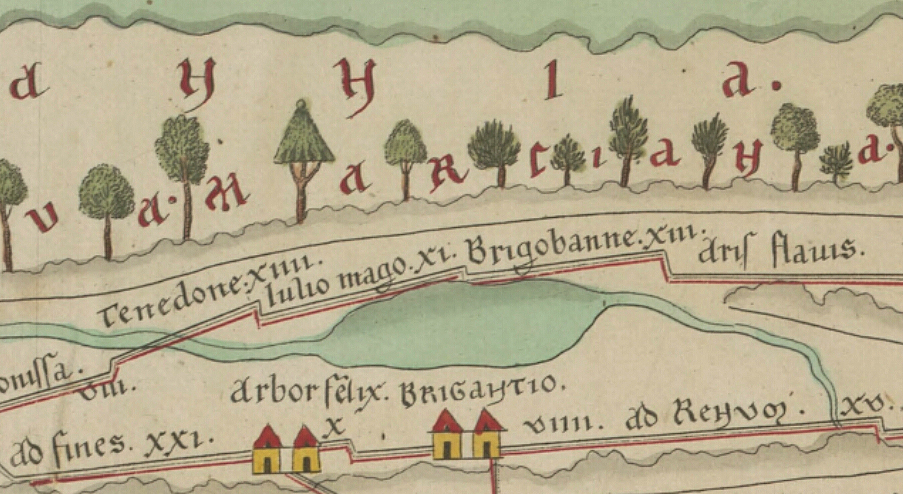 a y y i a.
v a. m a r c i a n a.
Tenedone. xiiii. Iulio mago. xi. Brigobanne. xiii. Aris flavis.
viii. Arbor felix. BRIGANTIO.
ad fines. xxi. x viiii. ad Renum. xv.